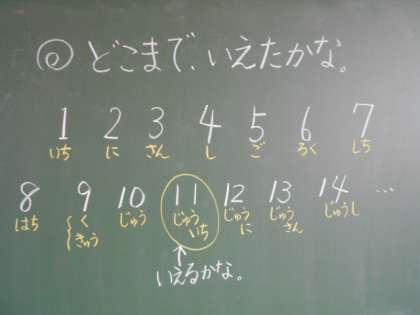 ◎どこまで、いえたかな。
1 2 3 4 5 6 7
いち に さん し ご ろく しち
8 9 10 11 12 13 14 …
はち く じゅう じゅう じゅう じゅう じゅうし
きゅう いち に さん
いえるかな。